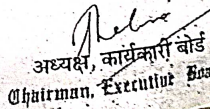 अध्यक्ष, कार्यकारी बोर्ड
Chairman, Executive